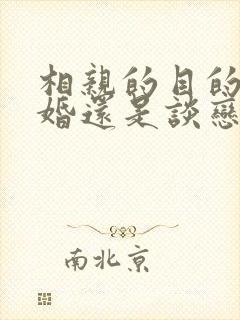 相親的目的
婚還是談戀
南北京